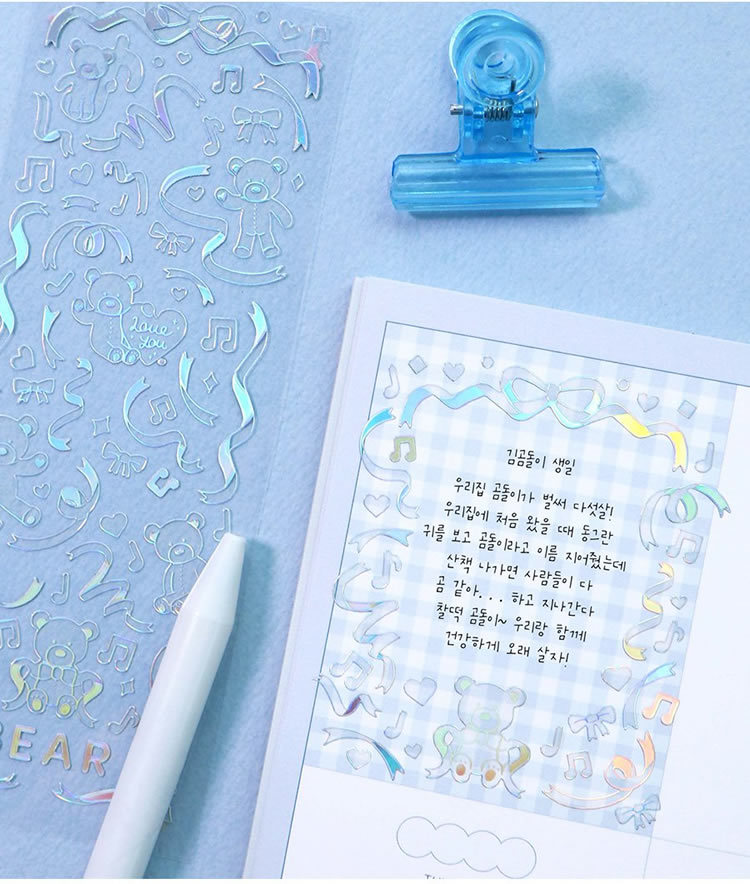 Love
you
BEAR
김곰돌이 생일
우리집 곰돌이가 벌써 다섯살!
우리집에 처음 왔을 때 동그란
귀를 보고 곰돌이라고 이름 지어줬는데
산책 나가면 사람들이 다
곰 같아... 하고 지나간다
찰떡 곰돌이~ 우리랑 함께
건강하게 오래 살자!